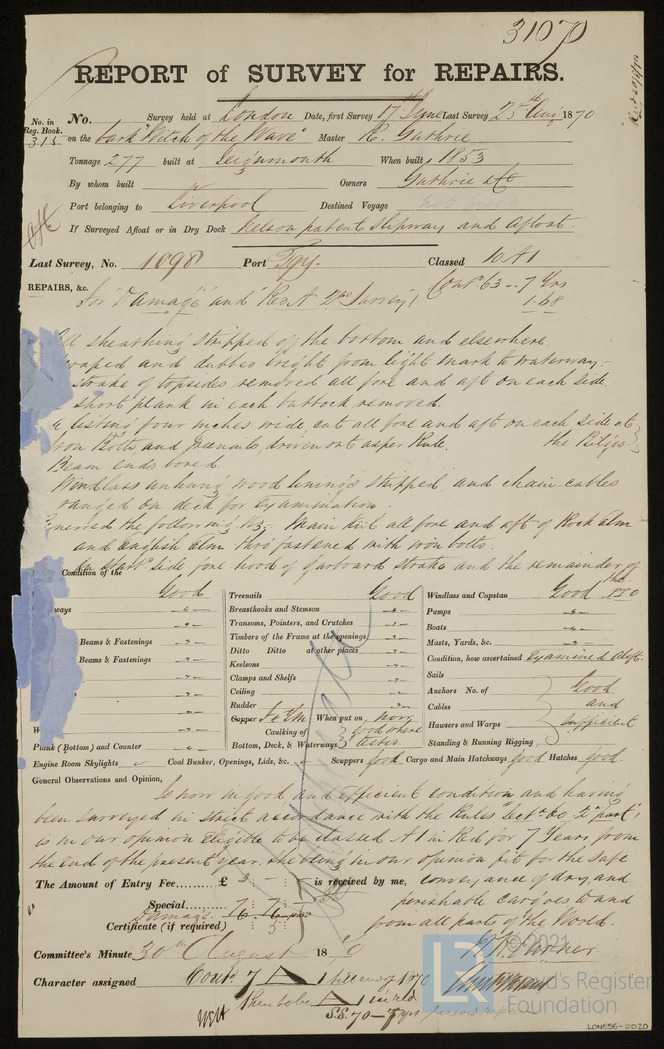 3107
REPORT of SURVEY for REPAIRS.
No. in Reg. Book. 315
No. Survey held at London Date, first Survey 17 June Last Survey 25th Aug 1870
on the bark "Witch of the Wave" Master R. Guthrie
Tonnage 277 built at Teignmouth When built 1853
By whom built Owners Guthrie & Co
Port belonging to Liverpool Destined Voyage
If Surveyed Afloat or in Dry Dock Nelson patent Slipway and Afloat.
Last Survey, No. 1098 Port Tyne. Classed 10 A1
Contd 63 - 7 Yrs
1.68
REPAIRS, &c. For "Damage" and "Rest. 2nd Survey"
All sheathing stripped of the bottom and elsewhere
scraped and dubbed bright from light mark to waterway.
strake of topsides removed all fore and aft on each side.
short plank in each buttock removed.
a listing four inches wide cut all fore and aft on each side at
the Bilges.
Iron Bolts and treenails driven out as per Rule.
Beam ends bored.
Windlass unhung wood linings stripped and chain cables
ranged on deck for Examination
the following Viz. Main Keel all fore and aft of Rock Elm
and English Elm thro' fastened with iron bolts.
On Starbd side fore hood of Garboard strake and the remainder of the
Condition of the
Good Treenails Good Windlass and Capstan Good
ways Breasthooks and Stemson Pumps
Transoms, Pointers, and Crutches Boats
Beams & Fastenings Timbers of the Frame at the openings Masts, Yards, &c.
Beams & Fastenings Ditto Ditto at other places Condition, how ascertained Examined Aloft.
Keelsons Sails
Clamps and Shelfs Anchors No. of Good
Ceiling Cables and
Rudder Hawsers and Warps sufficient
Copper When put on now Standing & Running Rigging
Caulking of Bottom, Deck, & Waterways good where tested
Plank (Bottom) and Counter
Engine Room Skylights Coal Bunker, Openings, Lids, &c. Scuppers good Cargo and Main Hatchways good Hatches good.
General Observations and Opinion,
Is now in good and efficient condition and having
been surveyed in strict accordance with the Rules Sect. 60, 2nd part,
is in our opinion eligible to be classed A1 in Red for 7 Years from
the end of the present year. She being in our opinion fit for the safe
conveyance of dry and
perishable cargoes to and
from all parts of the World.
The Amount of Entry Fee......... £ 3 is received by me,
Special
Damage
Certificate (if required) 5
Committee's Minute 30th August 1870
Character assigned Contd 7 A 1 till end of 1870
then to be A 1 in red
S.S. 70 - 7 yrs
© 2021
LR Lloyd's Register Foundation
LON656-0020